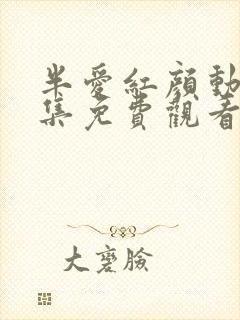 半愛紅顔動
集免費觀看
大麥臉